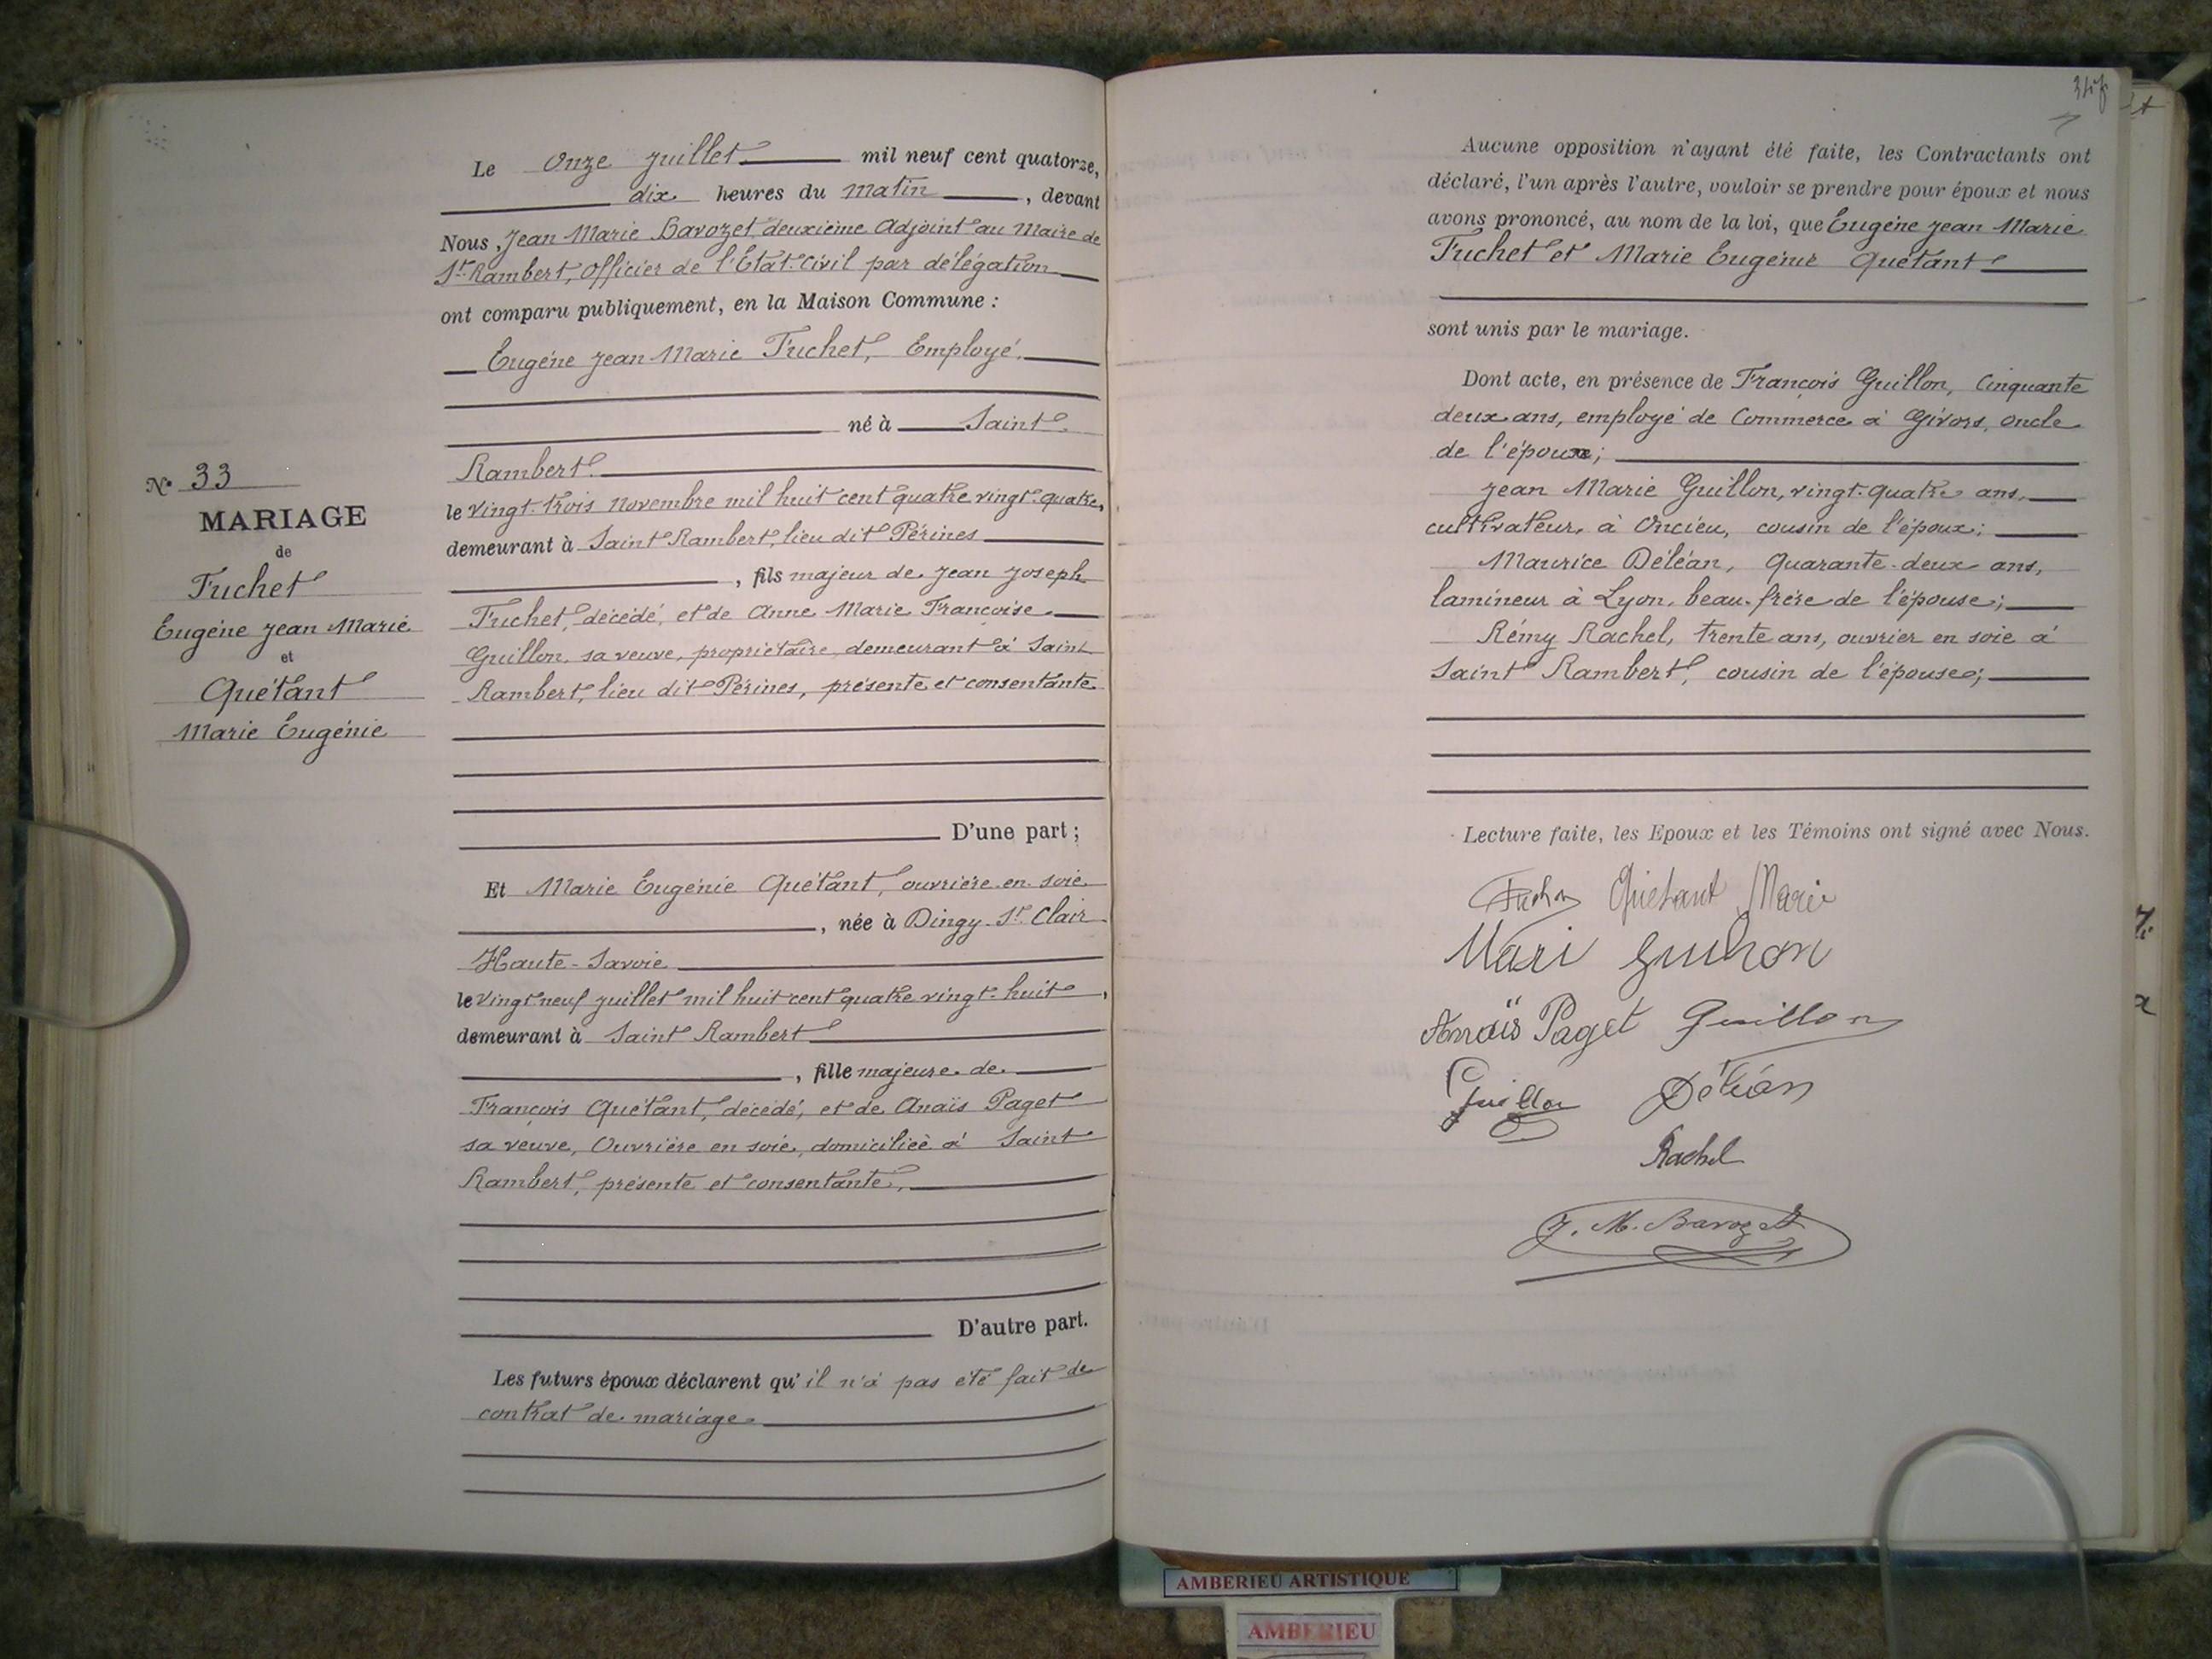 Le Onze Juillet mil neuf cent quatorze,
dix heures du Matin, devant
Nous, Jean Marie Bavozet deuxième Adjoint au Maire de
St Rambert, Officier de l'État-Civil par délégation
ont comparu publiquement, en la Maison Commune :
Eugène Jean Marie Fuchet, Employé.
né à Saint
Rambert
le vingt-trois Novembre mil huit cent quatre vingt-quatre,
demeurant à Saint Rambert, lieu dit Pérines
, fils majeur de Jean Joseph
Fuchet, décédé, et de Anne Marie Françoise
Guillon, sa veuve, propriétaire, demeurant à Saint
Rambert, lieu dit Pérines, présente et consentante
D'une part ;
Et Marie Eugénie Quétant, ouvrière en soie
, née à Dingy-St-Clair
Haute-Savoie
le vingt-neuf Juillet mil huit cent quatre vingt-huit,
demeurant à Saint Rambert
, fille majeure de
François Quétant, décédé, et de Anaïs Paget
sa veuve, Ouvrière en soie, domiciliée à Saint
Rambert, présente et consentante,
D'autre part.
Les futurs époux déclarent qu'il n'a pas été fait de
contrat de mariage.
N° 33
MARIAGE
de
Fuchet
Eugène Jean Marie
et
Quétant
Marie Eugénie
Aucune opposition n'ayant été faite, les Contractants ont
déclaré, l'un après l'autre, vouloir se prendre pour époux et nous
avons prononcé, au nom de la loi, que Eugène Jean Marie
Fuchet et Marie Eugénie Quétant
sont unis par le mariage.
Dont acte, en présence de François Guillon, Cinquante
deux ans, employé de Commerce à Givors, oncle
de l'époux;
Jean Marie Guillon, vingt-quatre ans,
cultivateur, à Oncieu, cousin de l'époux;
Maurice Déléan, Quarante-deux ans,
lamineur à Lyon, beau-frère de l'épouse;
Rémy Rachel, trente ans, ouvrier en soie à
Saint Rambert, cousin de l'épouse;
Lecture faite, les Epoux et les Témoins ont signé avec Nous.
Quetant Marie
Mari
Anaïs Paget Guillon
Guillon Déléan
Rachel
J. M. Bavozet
AMBERIEU ARTISTIQUE
AMBERIEU